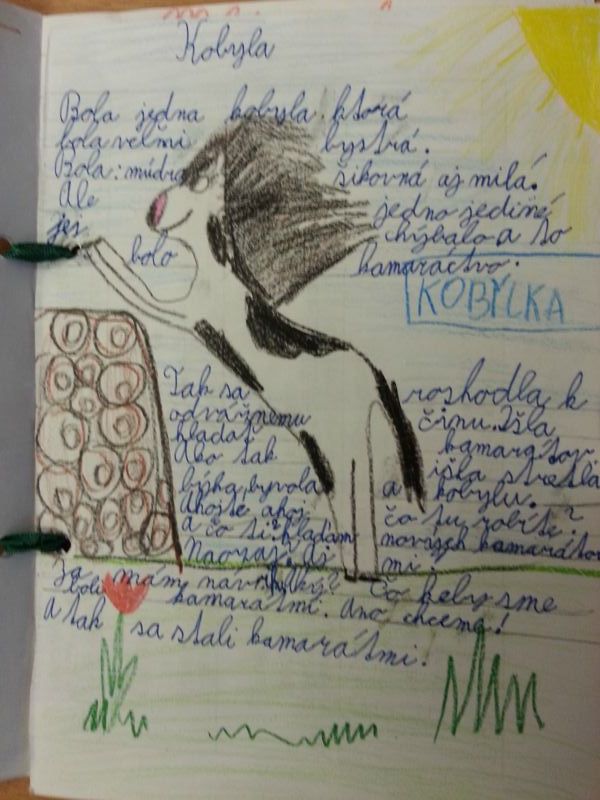 Kobyla
Bola jedna kobyla ktorá
bola veľmi bystrá.
Bola: múdra šikovná aj milá.
Ale jedno jediné
jej bolo chýbalo a to
kamarátstvo.
KOBYLKA
Tak sa roshodla k
odvážnemu činu. Išla
hladať kamarátov.
Ako tak išla stretla
býka, byvola a kobylu.
Ahojte ahoj čo tu robíte?
a čo ti? hladám novych kamarátov
Naozaj. Aj mi!
Ja mám návrh. Čo keby sme
boli kamarátmi. Áno chceme!
A tak sa stali kamarátmi!